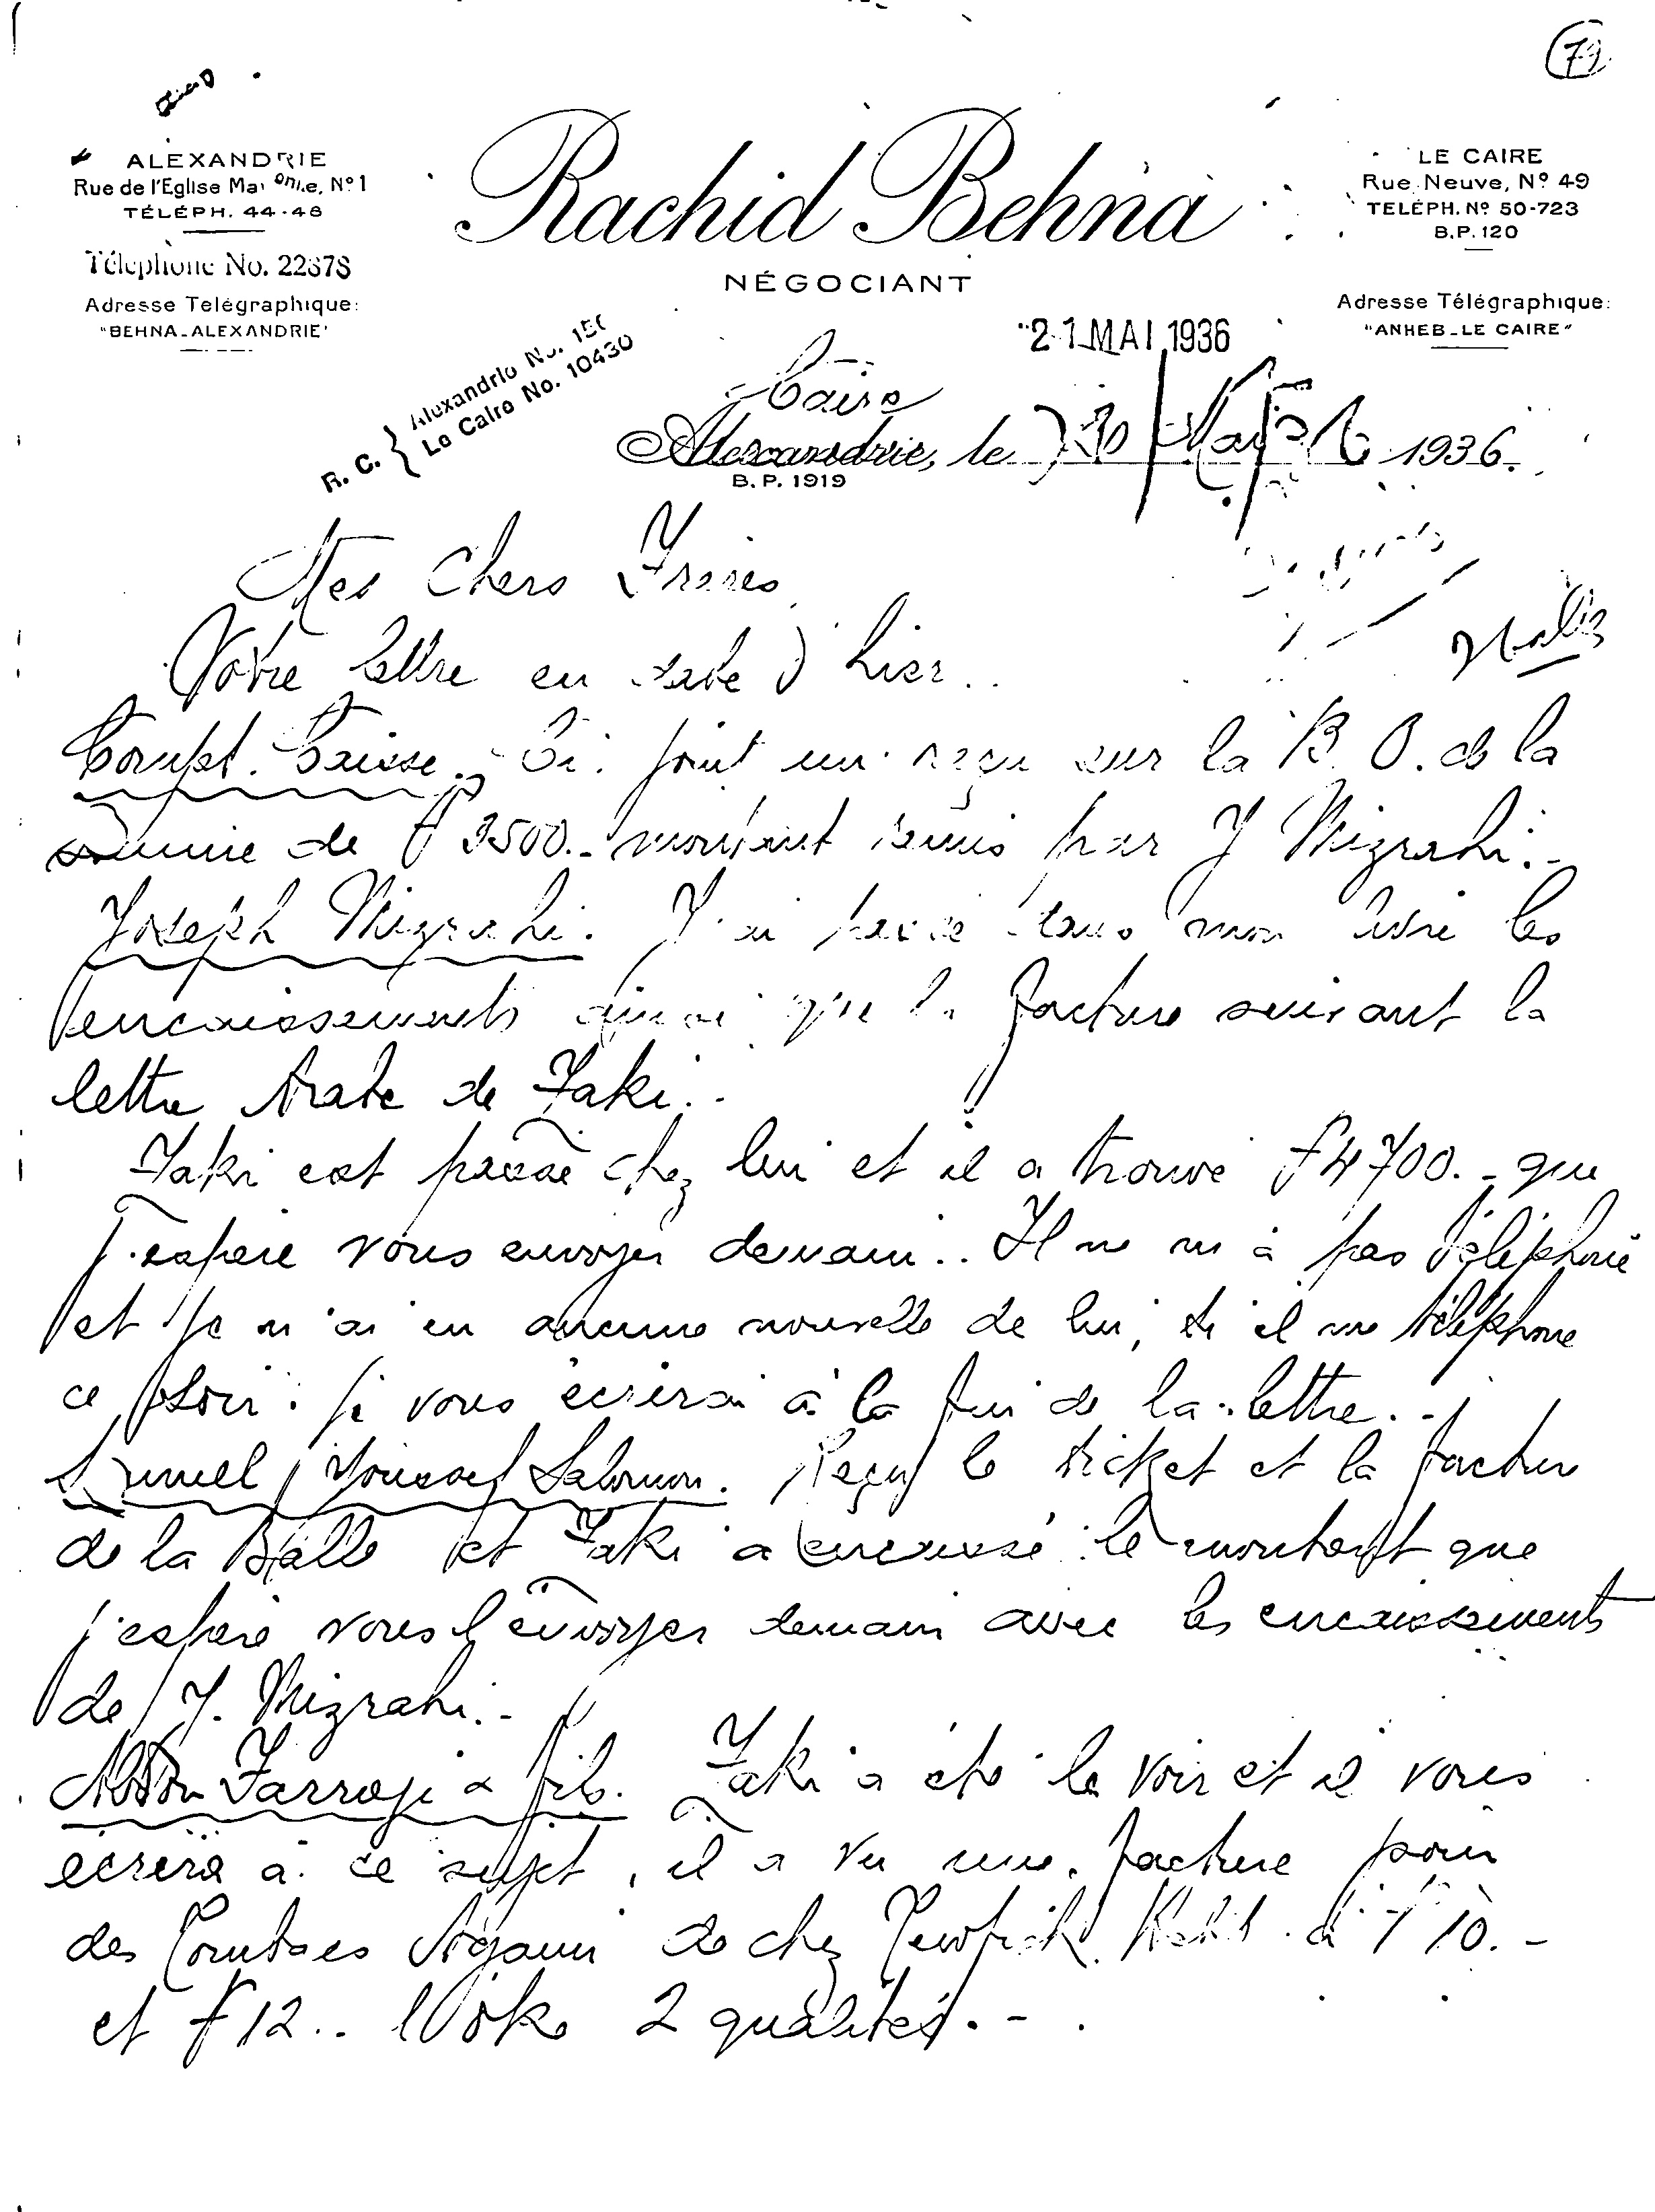 79
ALEXANDRIE
Rue de l'Eglise Maronite, Nº 1
TÉLÉPH. 44-48
Téléphone No. 22678
Adresse Telégraphique:
"BEHNA_ALEXANDRIE"
Rachid Behna
NÉGOCIANT
LE CAIRE
Rue Neuve, Nº 49
TELÉPH. Nº 50-723
B.P. 120
Adresse Télégraphique:
"ANHEB_LE CAIRE"
R. C. { Alexandrie No.
Le Caire No. 10430
21 MAI 1936
Caire
Alexandrie, le 20 Mai 1936.
B.P. 1919
Mes Chers Frères
Votre lettre en date d'hier..
Compt. Caisse. Ci. joint un reçu sur la B. O. de la
somme de £ 3500.- montant remis par J Mizrahi.-
Joseph Mizrahi. J'ai passé dans mon livre les
encaissements ainsi que la facture suivant la
lettre Arabe de Zaki..
Zaki est passé chez lui et il a trouvé £ 4700.- que
j'espere vous envoyer demain.. Il ne m'a pas téléphoné
et je n'ai eu aucune nouvelle de lui, si il me téléphone
ce soir. je vous ecrirai à la fin de la lettre.-
Youssef Salomon. Reçu le ticket et la facture
de la Balle et Zaki a encaissé le montant que
j'espere vous l'envoyer demain avec les encaissements
de J. Mizrahi.-
Farragi & fils. Zaki a été le voir et il vous
ecrira à ce sujet, il a vu une facture pour
des de chez à £ 10.-
et £ 12.. l'Oke 2 qualités.-